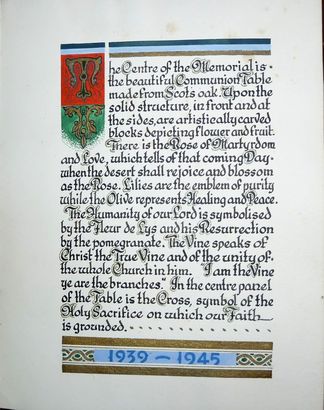 The Centre of the Memorial is
the beautiful Communion Table
made from Scots oak. Upon the
solid structure, in front and at
the sides, are artistically carved
blocks depicting flower and fruit.
There is the Rose of Martyrdom
and Love, which tells of that coming Day
when the desert shall rejoice and blossom
as the Rose. Lilies are the emblem of purity
while the Olive represents Healing and Peace.
The Humanity of our Lord is symbolised
by the Fleur de Lys and his Resurrection
by the pomegranate. The Vine speaks of
Christ the True Vine and of the unity of
the whole Church in him. "I am the Vine
ye are the branches." In the centre panel
of the Table is the Cross, symbol of the
Holy Sacrifice on which our Faith
is grounded.
1939 - 1945